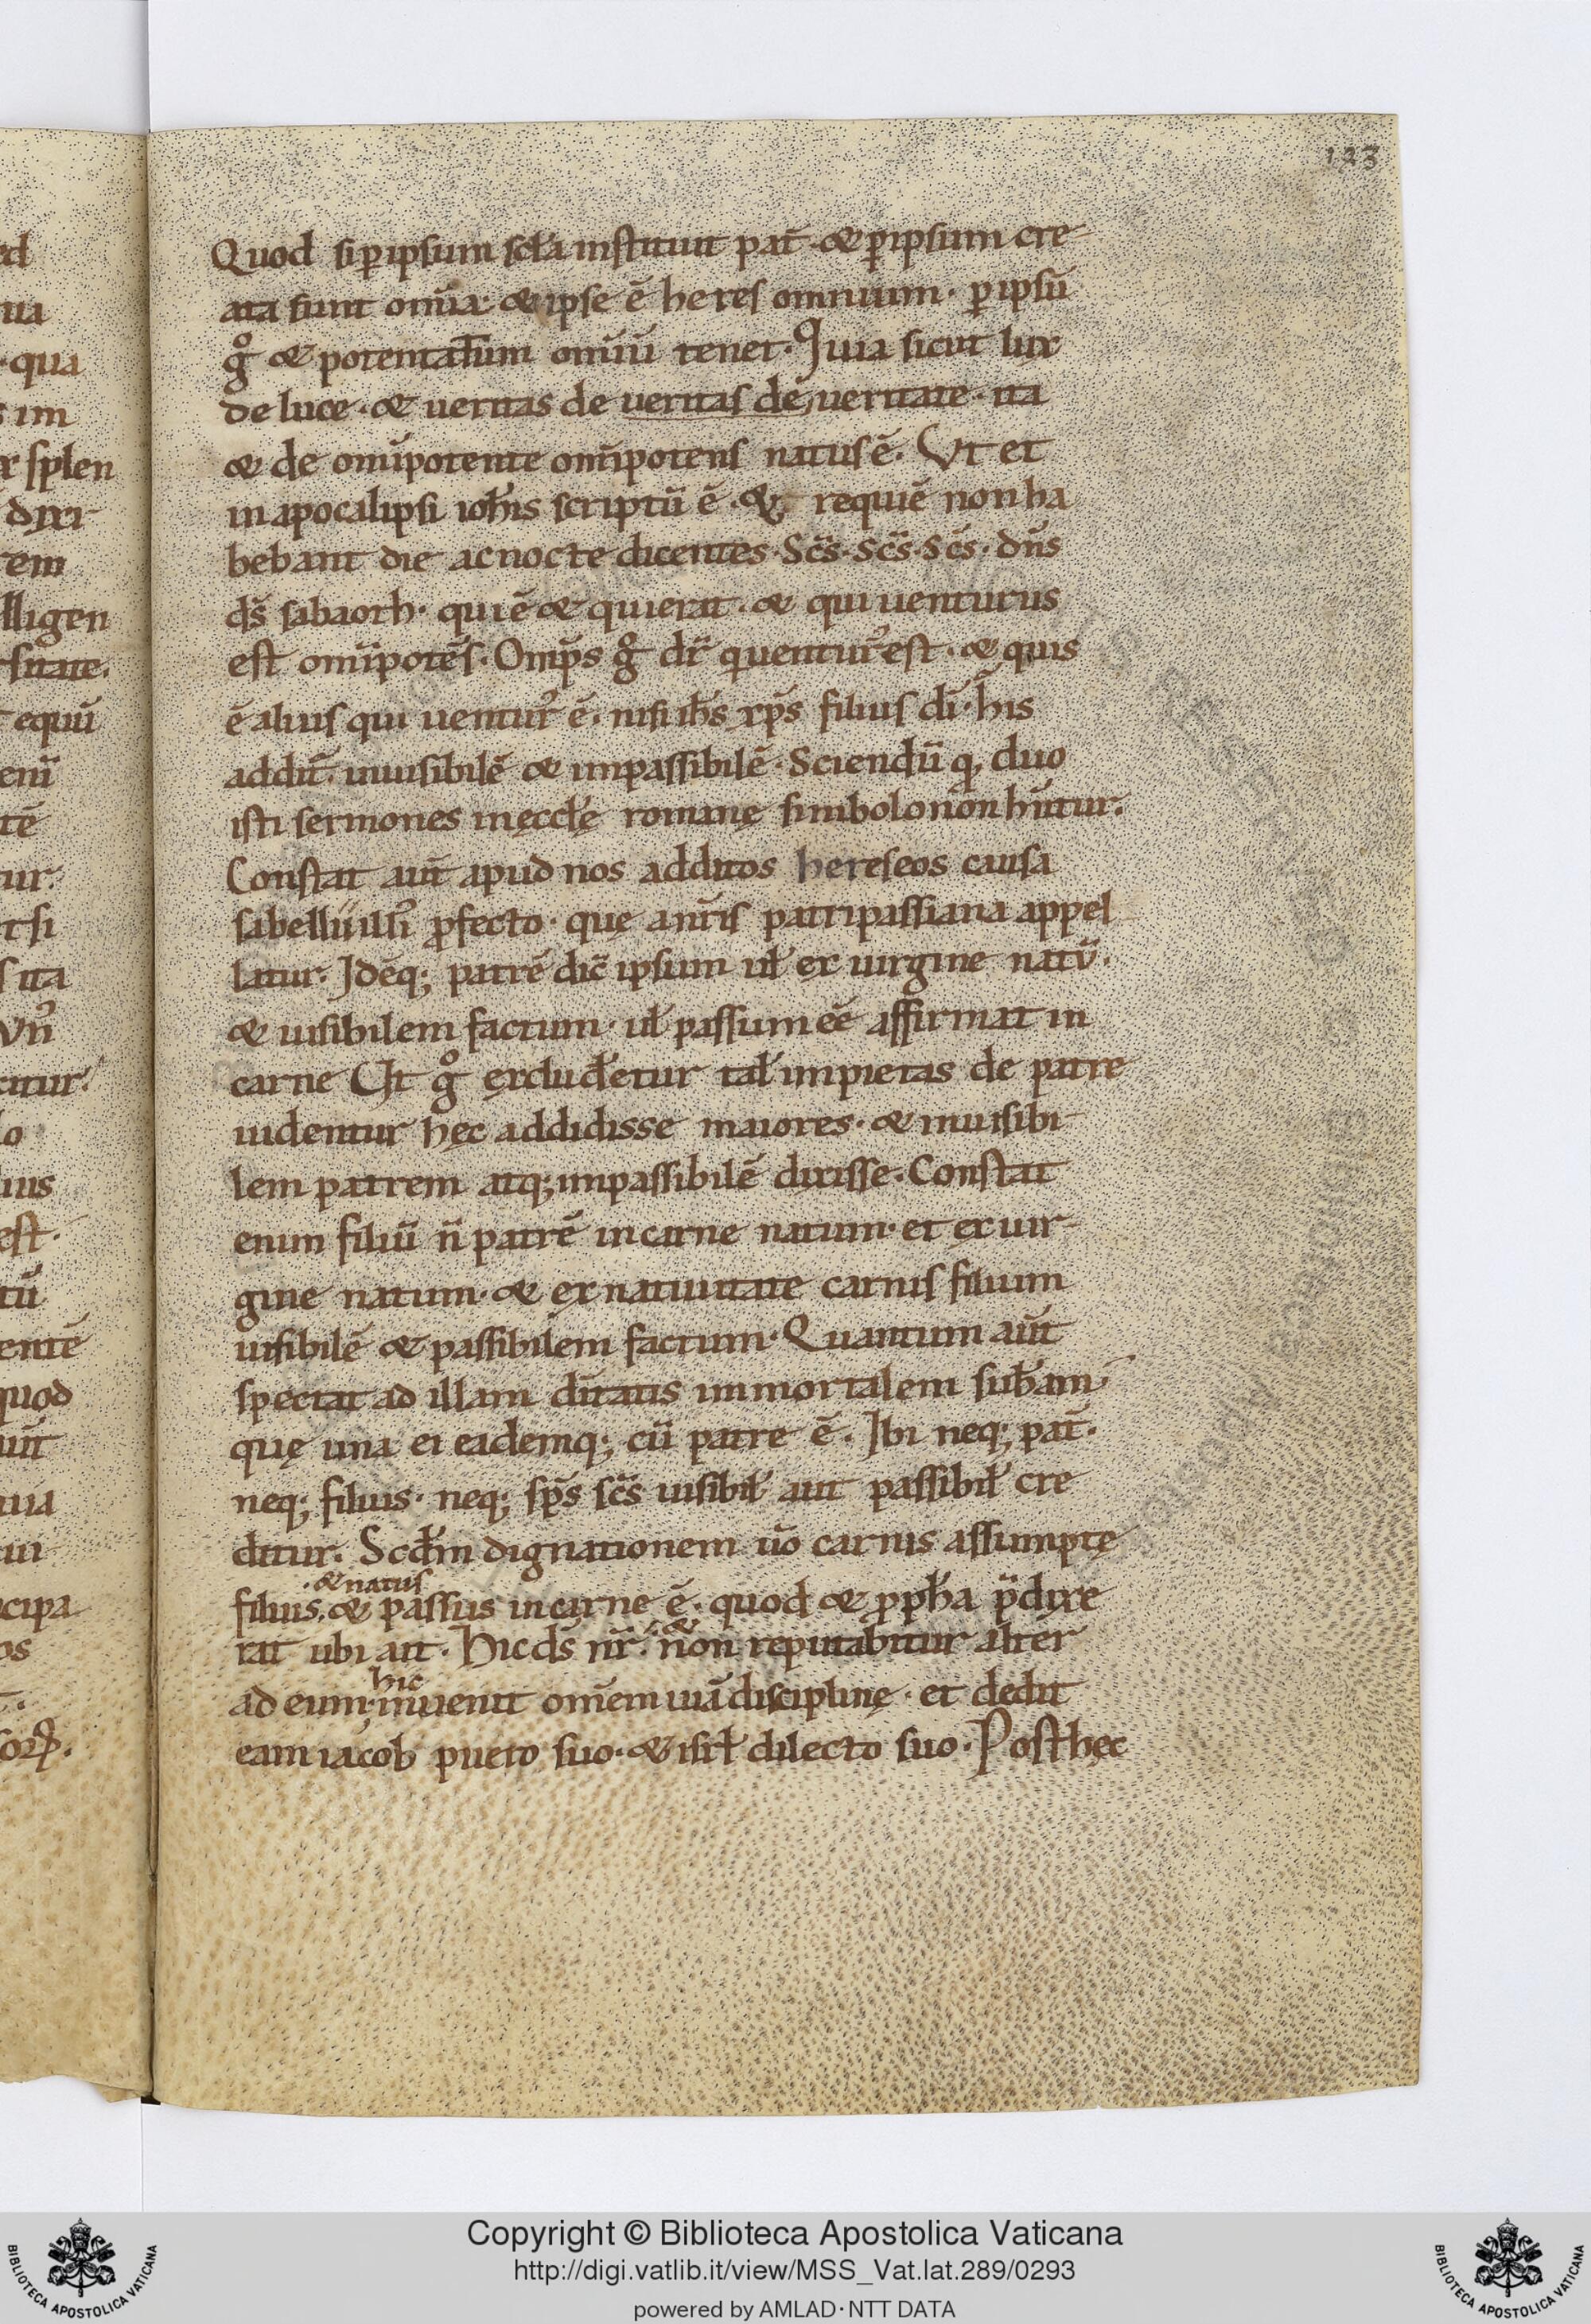 123
Quod si p̱ ipsum scła instituit pat̄· & p̱ ipsum cre
ata sunt om̄ia· & ipse ē heres omnium· p̱ ipsū
gͦ & potentatum om̄iū tenet· Quia sicut lux
de luce· & ueritas de ueritas de ueritate· ita
& de om̄ipotente om̄ipotens natus ē. Vt et
in apocalipsi ioħis scriptū ē· & requiē non ha
bebant die ac nocte dicentes· Sc̄s· Sc̄s· Sc̄s· dn̄s
ds̄ sabaoth· qui ē & qui erat· & qui uenturus
est om̄ipotēs· Om̄ps gͦ dr̄ q uentur᾽ est· & quis
ē alius qui uentur᾽ ē· nisi ih̄s xp̄s filius di̅· his
addit̄· inuisibilē & impassibilē· Sciendū qđ duo
isti sermones in ęccłę romanę simbolo non hn̄tur·
Constat aut̄ apud nos additos hereseos causa
sabellii illi᾽ p̱fecto· quę a nr̄is patripassiana appel
latur· Id ē q; patrē dic̄ ipsum uł ex uirgine natū·
& uisibilem factum· uł passum eē affirmat in
carne Vt gͦ excluderetur tał impietas de patre
uidentur hęc addidisse maiores· & inuisibi
lem patrem atq; impassibilē dixisse· Constat
enim filiū n̄ patrē in carne natum· et ex uir
gine natum· & ex natiuitate carnis filium
uisibilē & passibilem factum· Quantum aut̄
spectat ad illam di̅tatis immortalem sub̄am·
quę una ei eademq; cū patre ē. Ibi neq; pat̄·
neq; filius· neq; sp̄s sc̄s uisibił aut passibił cre
ditur. Scđm dignationem uō carnis assumptę
· & natus
filius· & passus in carne ē· quod & p̱pha p̄dixe
&
rat ubi ait· Hic ds̄ nr̄· non reputabitur alter
hic
ad eum· inuenit om̄em uiā disciplinę· et dedit
eam iacob puero suo· & isrł dilecto suo· Post hęc
Copyright © Biblioteca Apostolica Vaticana
http://digi.vatlib.it/view/MSS_Vat.lat.289/0293
powered by AMLAD·NTT DATA
BIBLIOTECA APOSTOLICA VATICANA
BIBLIOTECA APOSTOLICA VATICANA